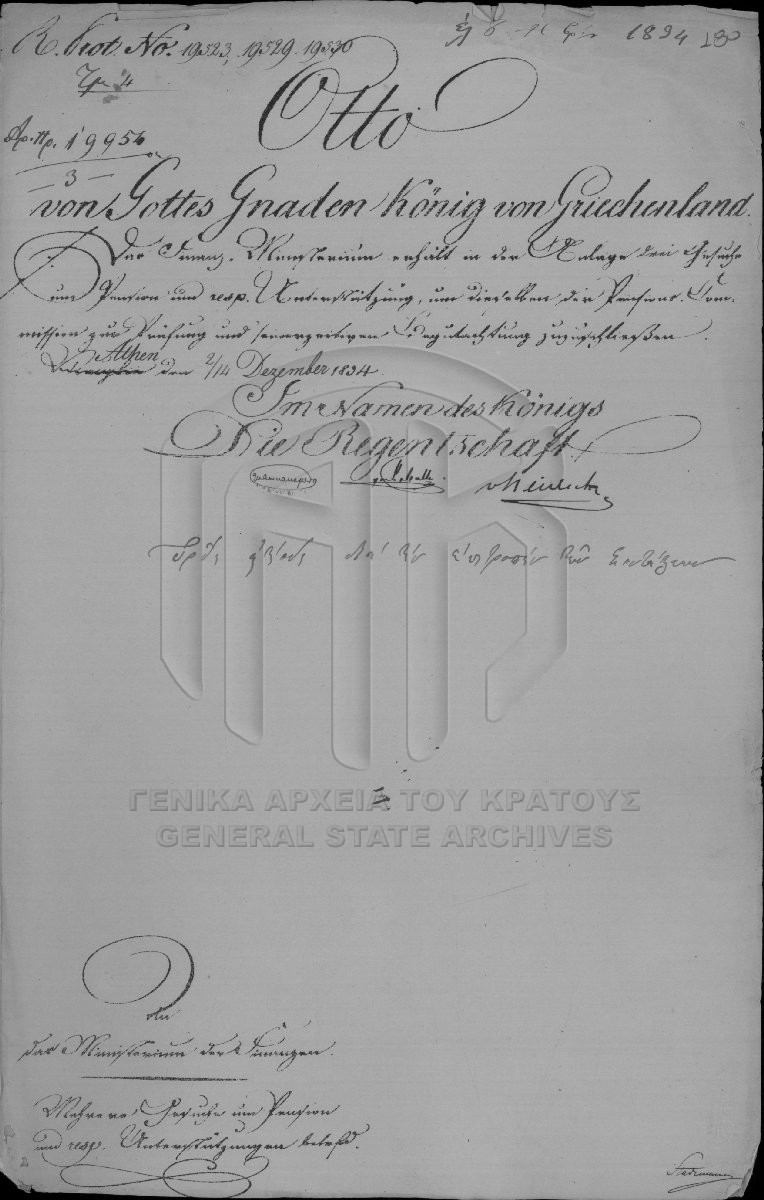 R. Prot. No. 19523, 19529. 19530
1834
Αρ. πρ. 19954
3
Otto
von Gottes Gnaden König von Griechenland.
Das Finanz-Ministerium erhält in der Anlage drei Gesuche
um Pension und resp. Unterstützung, um dieselben der Pensions-Com-
mission zur Prüfung und seinerzeitigen Begutachtung zuzuschließen.
Athen
den 2/14 Dezember 1834.
Im Namen des Königs
Die Regentschaft
πρὸς
ΓΕΝΙΚΑ ΑΡΧΕΙΑ ΤΟΥ ΚΡΑΤΟΥΣ
GENERAL STATE ARCHIVES
An
das Ministerium der Finanzen.
Mehrere Gesuche um Pension
und resp. Unterstützungen betrfd.